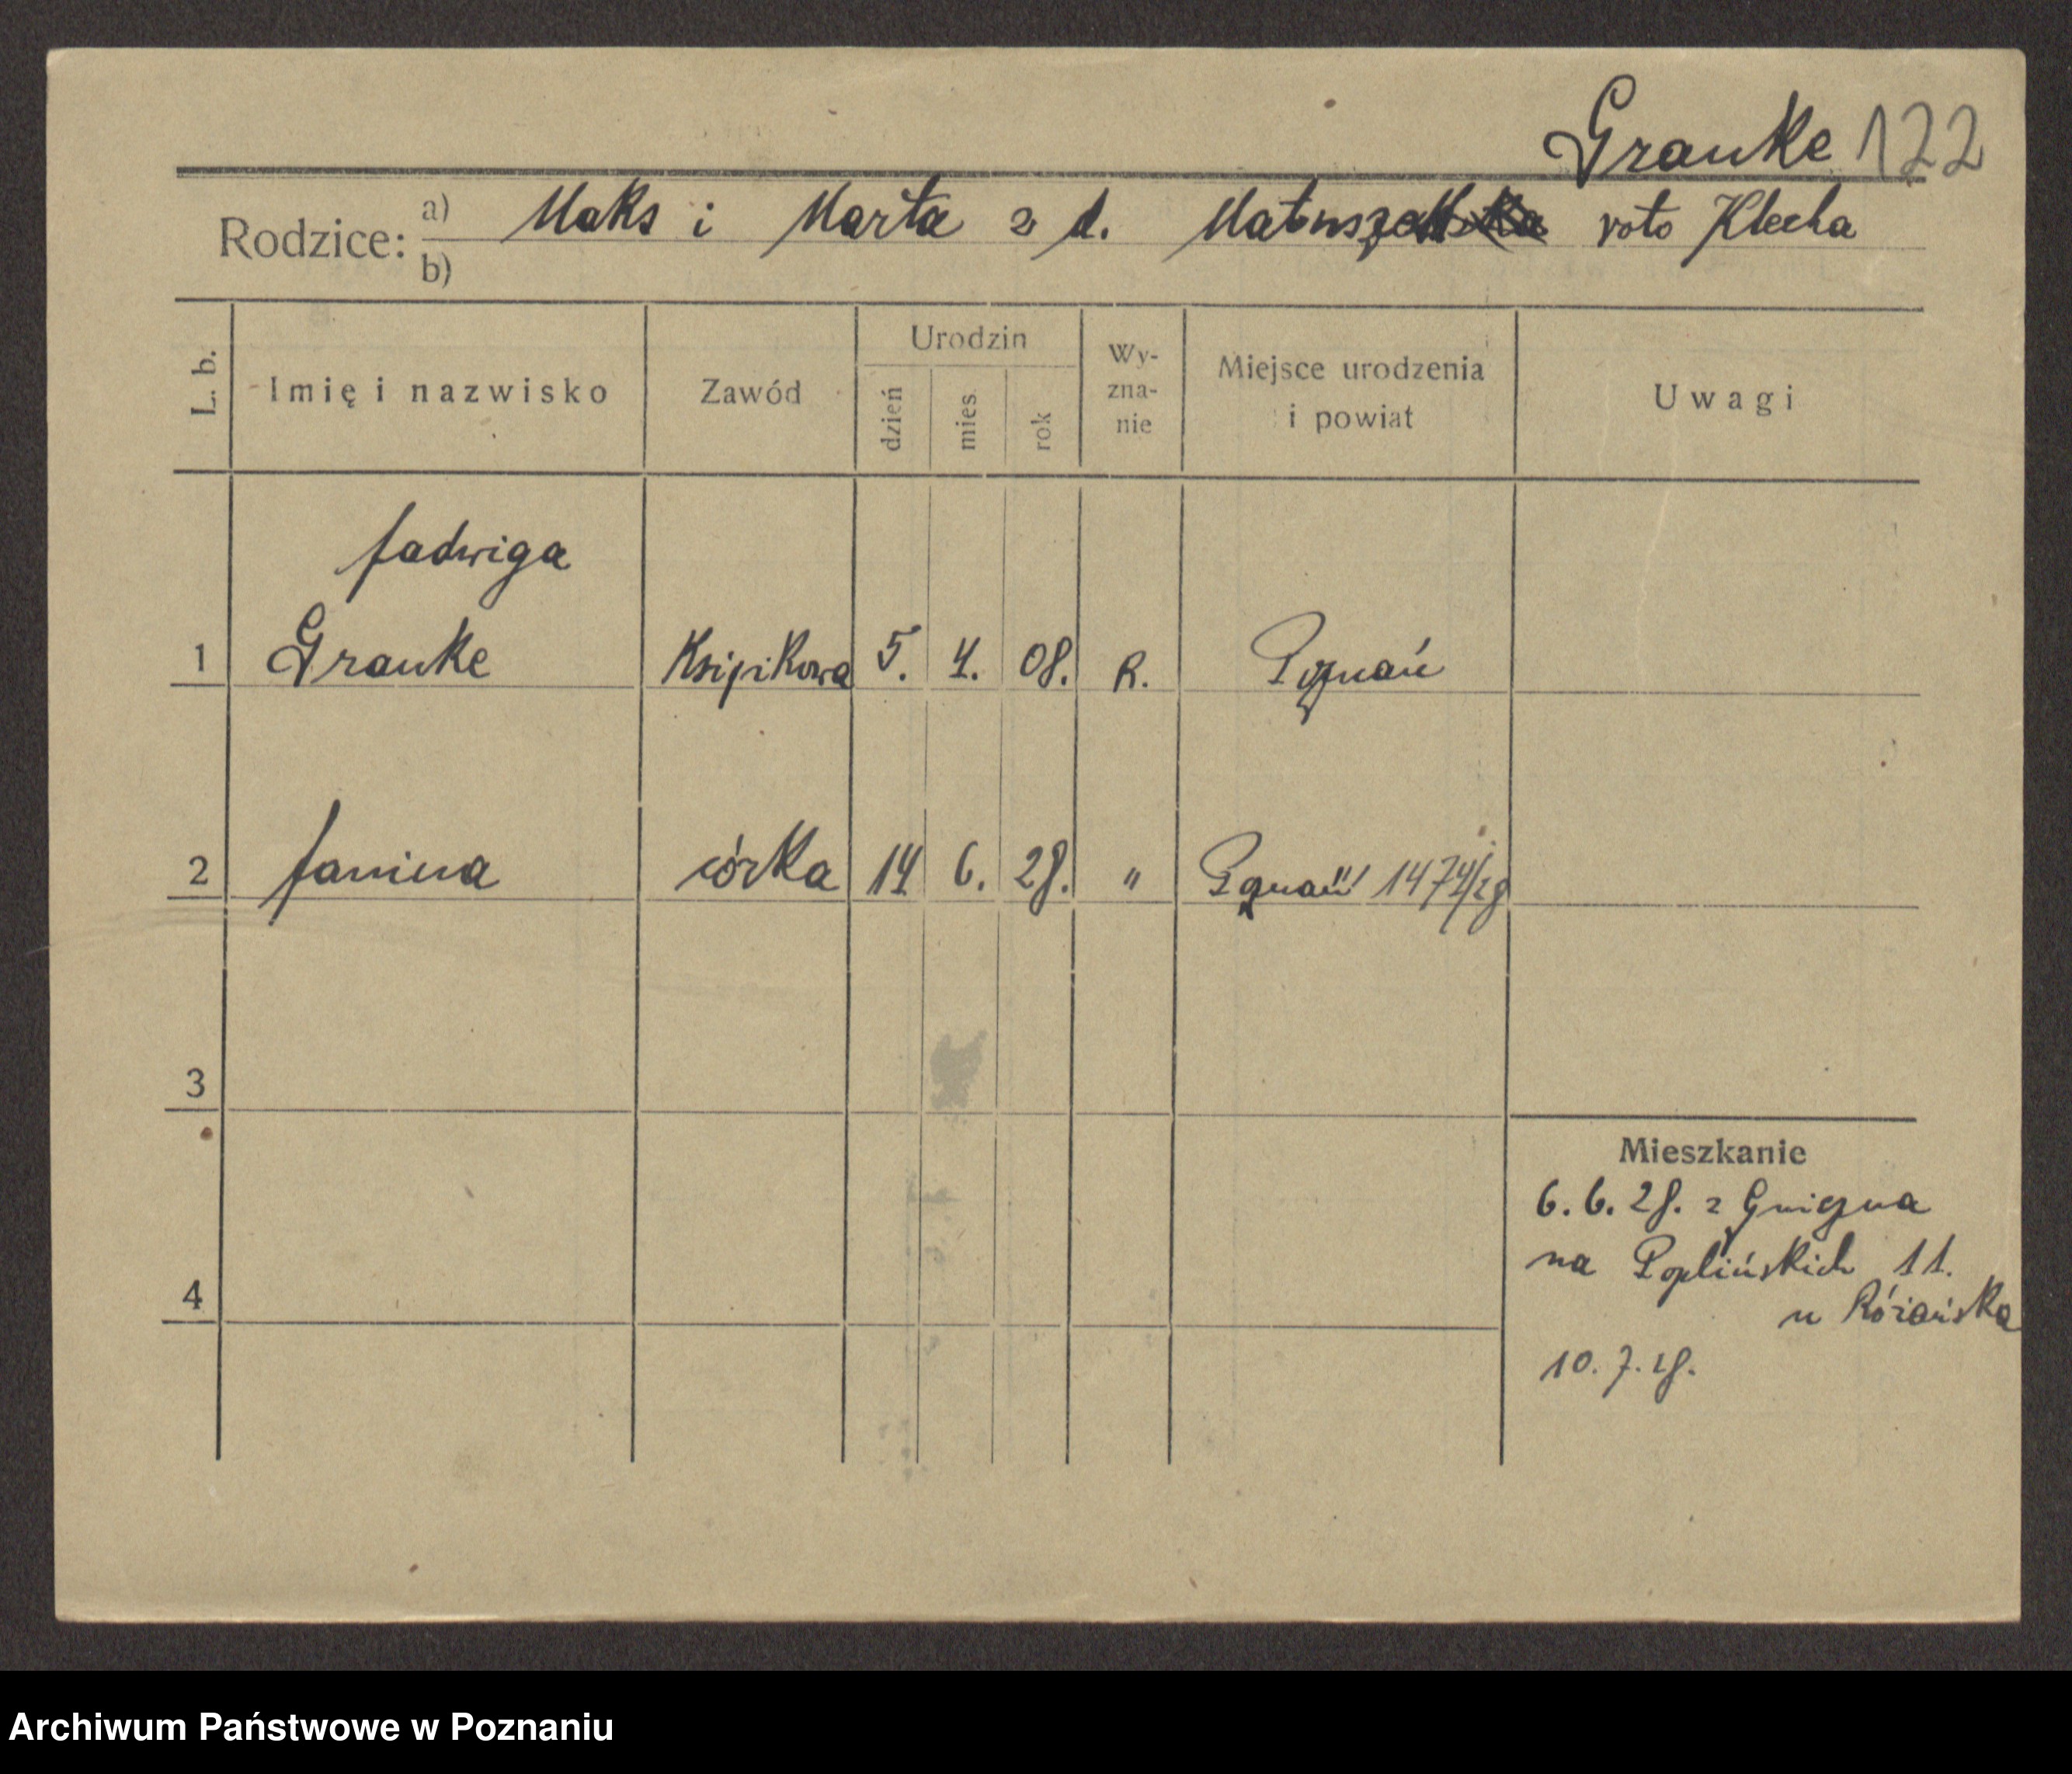 Granke 122
Rodzice: a) Maks i Marta z d. Matuszak voto Klecha
b)
L. b. Imię i nazwisko Zawód Urodzin dzień mies. rok Wy-zna-nie Miejsce urodzenia i powiat Uwagi
Jadwiga
1 Granke 5. 4. 08. R. Poznań
2 Janina córka 14 6. 28. " Poznań 1474/28
3
Mieszkanie
6. 6. 28. z Gniezna
na Poplińskich 11.
4
u Różańska
10. 7. 28.
Archiwum Państwowe w Poznaniu